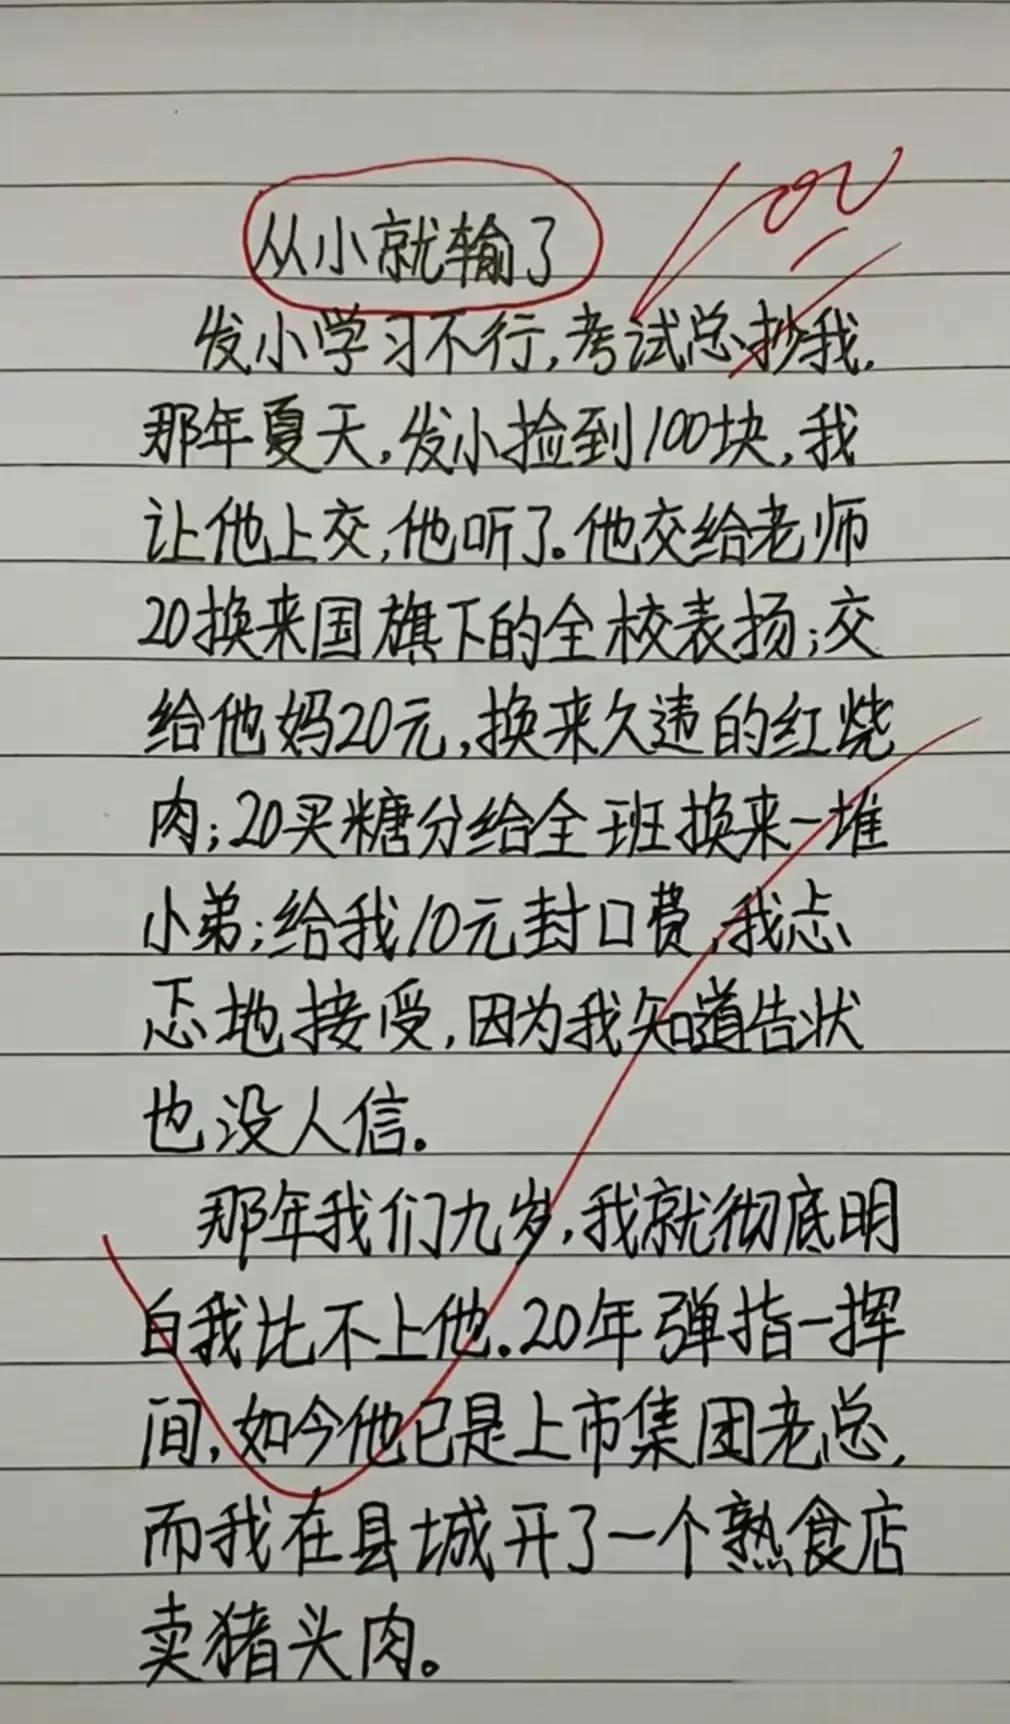 100
从小就输了
发小学习不行,考试总抄我.
那年夏天,发小捡到100块,我
让他上交,他听了。他交给老师
20换来国旗下的全校表扬;交
给他妈20元,换来久违的红烧
肉;20买糖分给全班换来一堆
小弟;给我10元封口费,我忐
忑地接受,因为我知道告状
也没人信.
那年我们九岁,我就彻底明
白我比不上他.20年弹指一挥
间,如今他已是上市集团老总,
而我在县城开了一个熟食店
卖猪头肉。